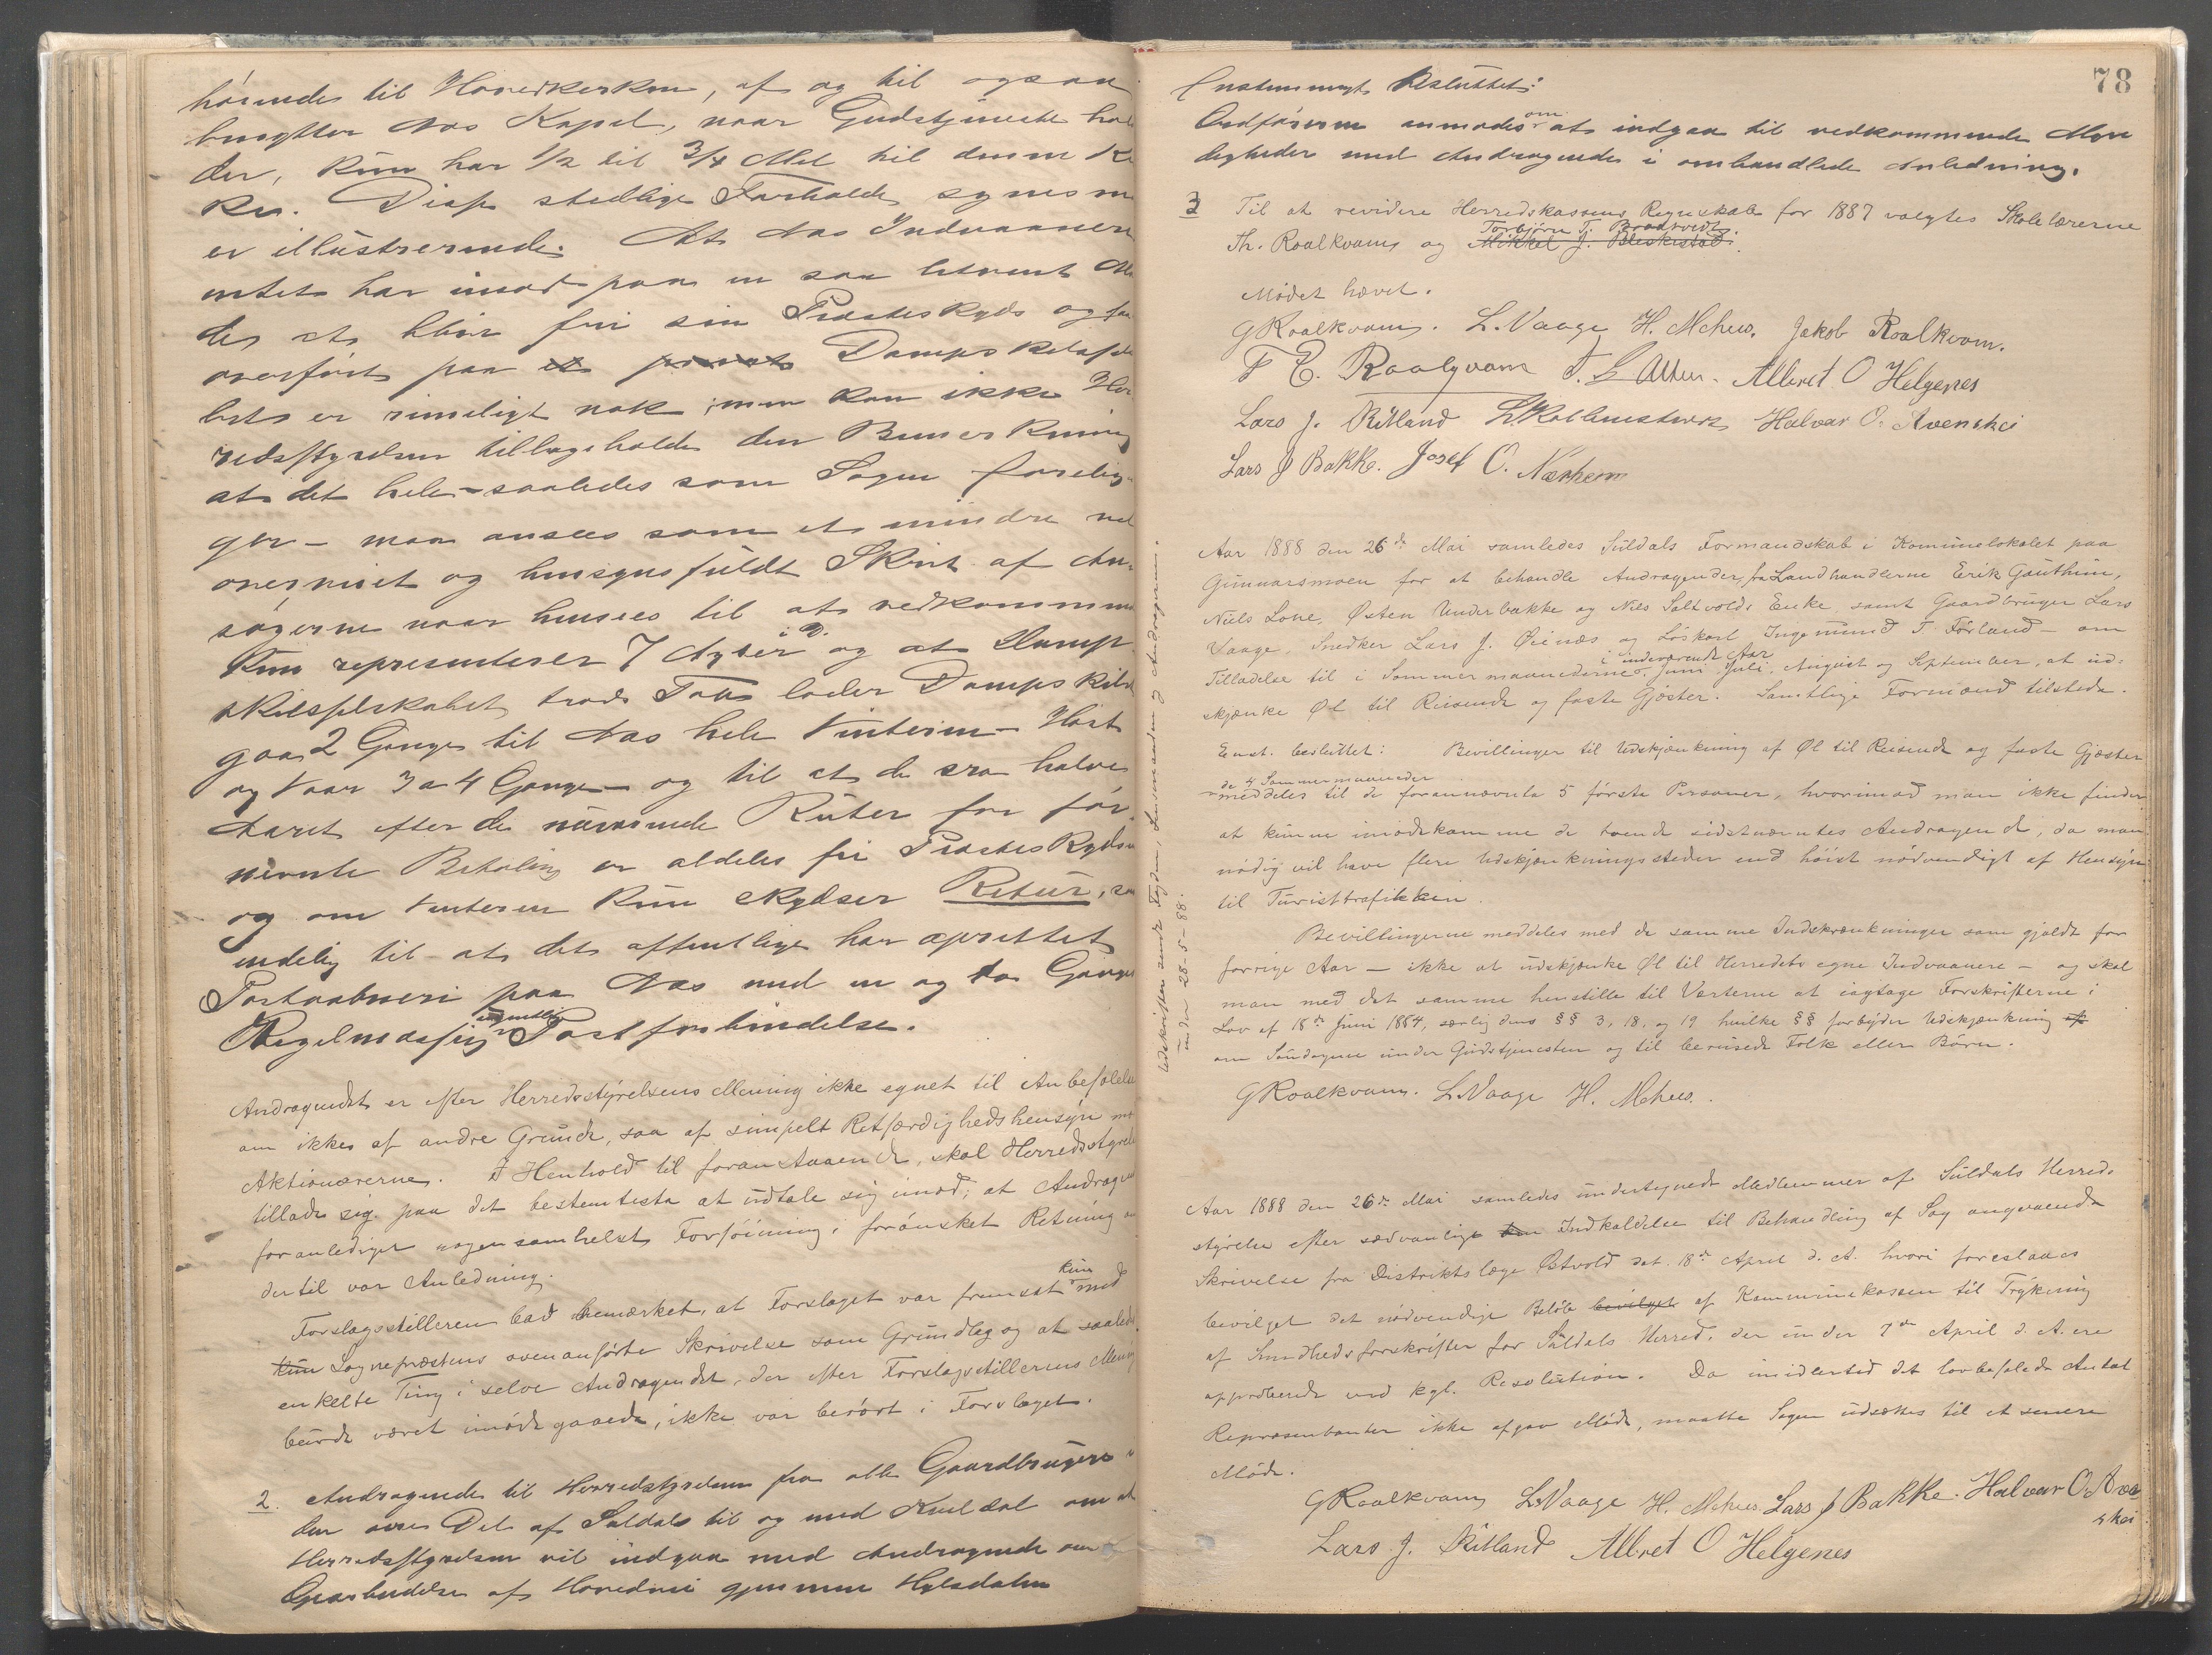 hörende til Hovedkirken, af og til ogsaa
benytter Nes Kapel, naar Gudstjeneste hol
der, kun har 1/2 til 3/4 Mil til denne Kir
ke. Disse stedlige Forholde synes m
er illustrerende. At Nes Indvaanere
entet har imod paa en saa letvent Maa
de at blive fri sin Presteskyds og faa
overført paa et privat Dampskibssel
skab er rimeligt nok, men kan ikke Her
redsstyrelsen tilbageholde den Bemerkning
at det hele – saaledes som Sagen forelig-
ger – maa ansees som et mindre vel
overveiet og hensynsfuldt Skridt af An-
søgerne naar hensees til at vedkommende
kun representerer 7 Aktier og at Damp
skibsselskabet trods Tab lader Dampskibet
gaa 2 Gange til Nes hele Vinteren – Høst
og Vaar 3 a 4 Gange – og til at de ca halve
Aaret efter de nuværende Ruter for før-
nævnte Betaling er aldeles fri Presteskydsen
og om Vinteren kun skydser Retur, sam
endelig til at det offentlige har oprettet
Postaabneri paa Nes med en og to Gange
Regelmæssig ugentlig Postforbindelse.
Andragendet er efter Herredsstyrelsens Mening ikke egnet til Anbefalelse
om ikke af andre Grunde, saa af simpelt Retfærdighedshensyn mod
Aktionærerne. I Henhold til foranstaaende, skal Herredsstyrelsen
tillade sig paa det bestemteste at udtale sig imod, at Andragendet
foranlediger nogensomhelst Forføining i forönsket Retning
dertil var Anledning.
Forslagsstilleren bad bemærket, at Forslaget var fremsat kun med
kun Sogneprestens ovenanførte Skrivelse som Grundlag og at saaledes
enkelte Ting i selve Andragendet, der efter Forslagsstillerens Mening
burde været imødegaaede, ikke var berört i Forslaget.
2. Andragende til Herredsstyrelsen fra alle Gaardbrugere i
den øvre Del af Suldal til og med Kvildal om at
Herredsstyrelsen vil indgaa med Andragende om
Oparbeidelse af Hovedvei gjennem Hylsdalen
78
Enstemmigt besluttet:
Ordföreren anmodes om at indgaa til vedkommende Myn
digheder med Andragende i omhandlede Anledning.
3 Til at revidere Herredskassens Regnskab for 1887 valgtes Skolelærerne
Th. Roalkvam og Torbjørn T. Bradtveit.
Mikkel J. Bleskestad.
Mødet hævet.
G Roalkvam. L. Vaage H. Mehus. Jakob Roalkvam.
T E. Roalqvam T. L Atten. Albret O Helgenes
Lars J. Ritland L. Kolbenstveit Halvar O. Aveneskei
Lars J Bakke. Josef O. Nærheim
Aar 1888 den 26de Mai samledes Suldals Formandskab i Komunelokalet paa
Gunnarsmoen for at behandle Andragender fra Landhandlerne Erik Gauthun,
Niels Lone, Østen Underbakke og Nils Saltvolds Enke, samt Gaardbruger Lars
Vaage, Snedker Lars J. Øinæs og Löskarl Ingemund T. Førland – om
Tilladelse til i Sommermaanederne i indeværende Aar Juni Juli, August og September, at ud-
skjænke Øl til Reisende og faste Gjester. Samtlige Formænd tilstede.
Enst. besluttet: Bevillinger til Udskjænkning af Øl til Reisende og faste Gjæster
de 4 Sommermaaneder
meddeles til de forannævnte 5 første Personer, hvorimod man ikke finder
at kunne imødekomme de tvende sidstnævntes Andragende, da man
nödig vil have flere Udskjænkningssteder end höist nödvendigt af Hensyn
til Turisttrafikken.
Bevillingerne meddeles med de samme Indskrænkninger som gjaldt for
forrige Aar – ikke at udskjænke Øl til Herredets egne Indvaanere – og skal
man med det samme henstille til Værterne at iagtage Forskrifterne i
Lov af 18de Juni 1884, særlig dens §§ 3, 18, og 19 hvilke §§ forbyder Udskjænkning af
om Söndagene under Gudstjenesten og til berusede Folk eller Børn.
G Roalkvam. L. Vaage H. Mehus.
Udskrifter sendt Fogden, Lensmanden og Andragerne.
under 28-5-88.
Aar 1888 den 26de Mai samledes undertegnede Medlemmer af Suldals Herreds
styrelse efter sædvanlige Indkaldelse til Behandling af Sag angaaende
Skrivelse fra Distriktslæge Østvold dat. 18de April d. A. hvori foreslaaes
bevilget det nødvendige Beløb bevilget af Kommunekassen til Trykning
af Sundhedsforskrifter for Suldals Herred, der under 7de April d. A. ere
approberede ved kgl. Resolution. Da imidlertid det lovbefalede Antal
Repræsentanter ikke afgav Møde, maatte Sagen udsættes til et senere
Møde.
G Roalkvam L. Vaage H. Mehus. Lars J Bakke. Halvar O. Avenes
skei
Lars J. Ritland Albret O Helgenes